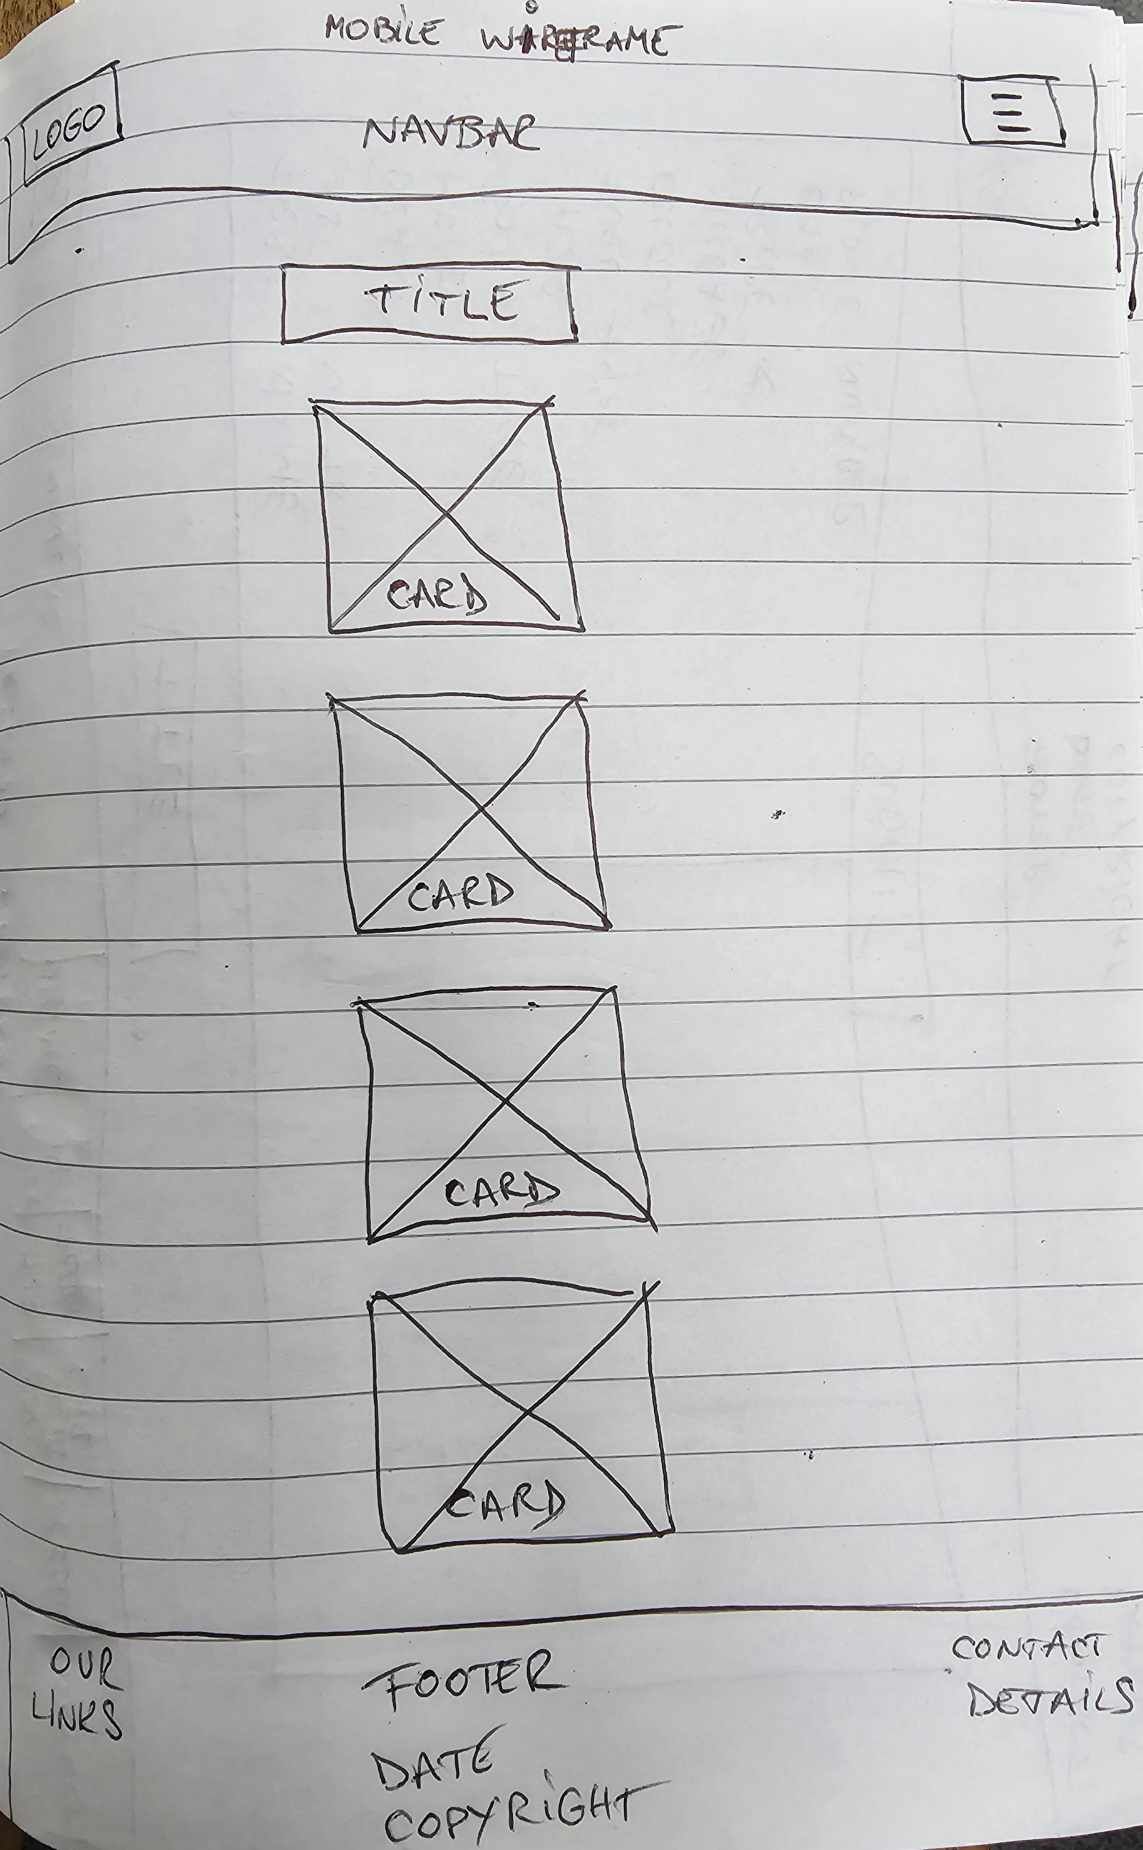 MOBILE WIREFRAME
LOGO
NAVBAR
TITLE
CARD
CARD
CARD
CARD
OUR
LINKS
FOOTER
DATE
COPYRIGHT
CONTACT
DETAILS